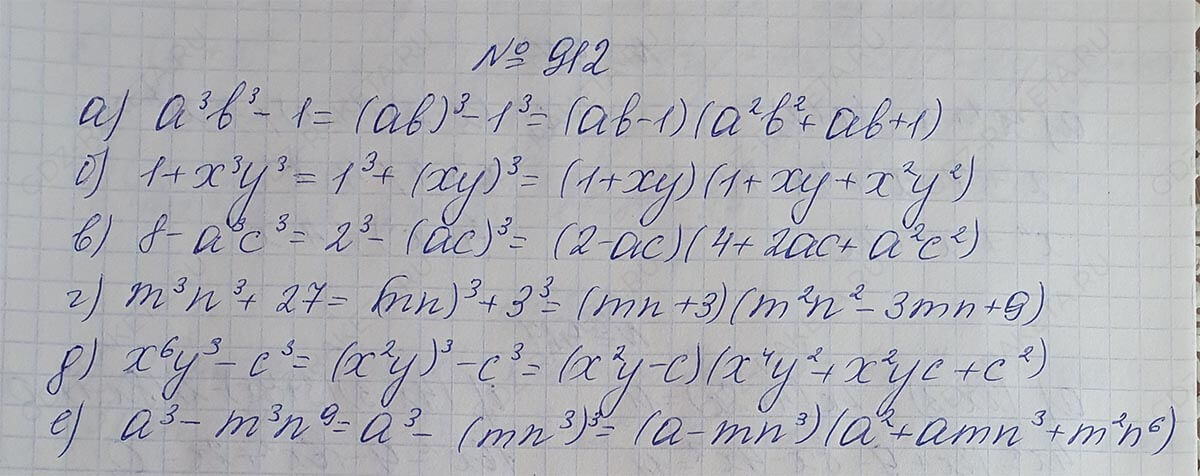 № 912
а) a³b³ - 1 = (ab)³ - 1³ = (ab-1)(a²b² + ab + 1)
б) 1 + x³y³ = 1³ + (xy)³ = (1+xy)(1 + xy + x²y²)
в) 8 - a³c³ = 2³ - (ac)³ = (2-ac)(4 + 2ac + a²c²)
г) m³n³ + 27 = (mn)³ + 3³ = (mn+3)(m²n² - 3mn + 9)
д) x⁶y³ - c³ = (x²y)³ - c³ = (x²y-c)(x⁴y² + x²yc + c²)
е) a³ - m³n⁹ = a³ - (mn³)³ = (a-mn³)(a² + amn³ + m²n⁶)